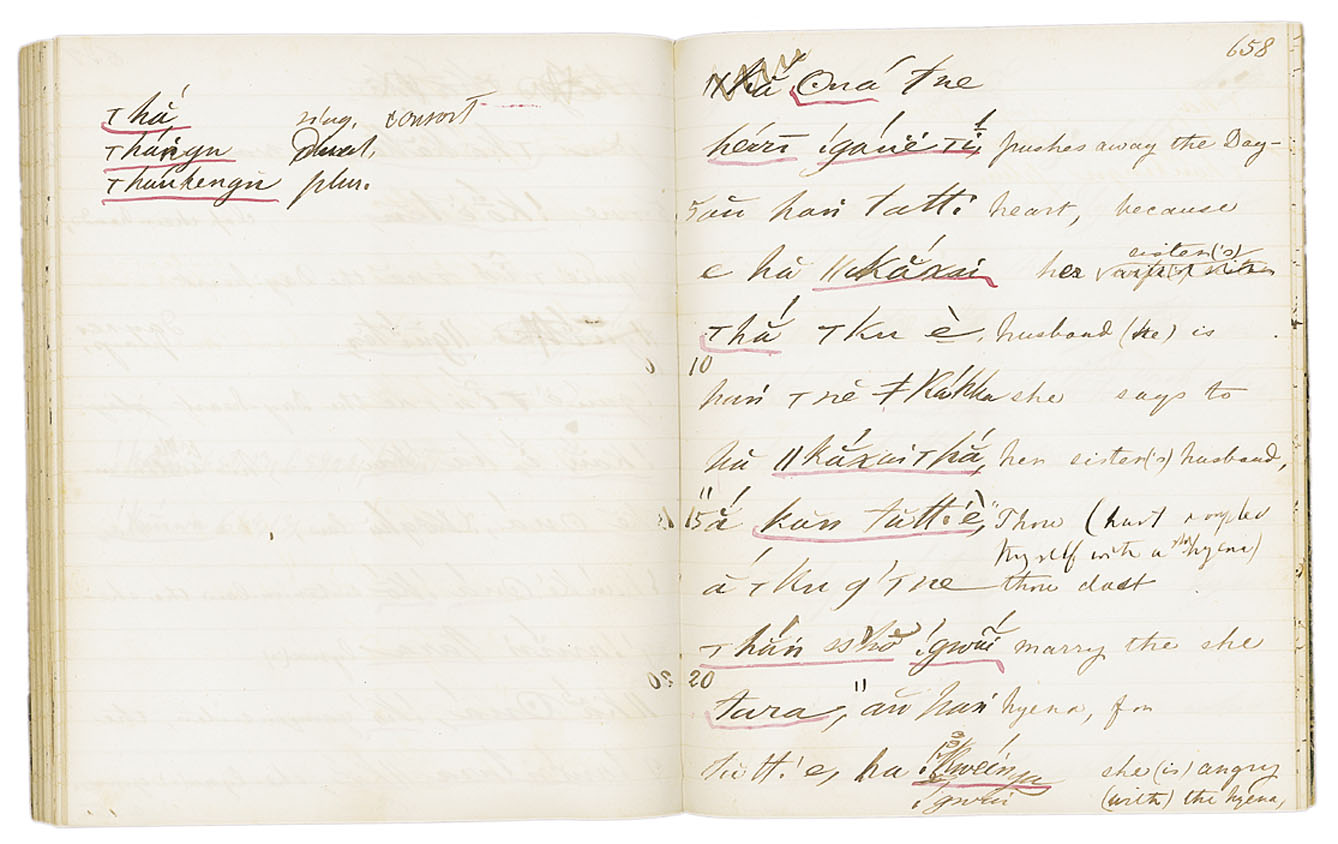 Thá sing. consort
Thángu Dual.
Thánkengu plur.
658
Ouá tne
hérri !gáué Ti, pushes away the Day-
5 au han tatti heart, because
e hă ||kăxai her sister('s)
Thă T Ku è, husband (the) is
10
han T nè ǂ Kákka she says to
hă ||kăxai Thá, her sister('s) husband,
15 "á kan tatti é, "Thou (hast coupled
thyself with a she hyena)
á T Ku g' T ne thou dost
Thán sshŏ !gwăi marry the she
20
tura," au han hyena, for
tatti e, ha !kweínya she (is) angry
!gwai (with) the hyena,